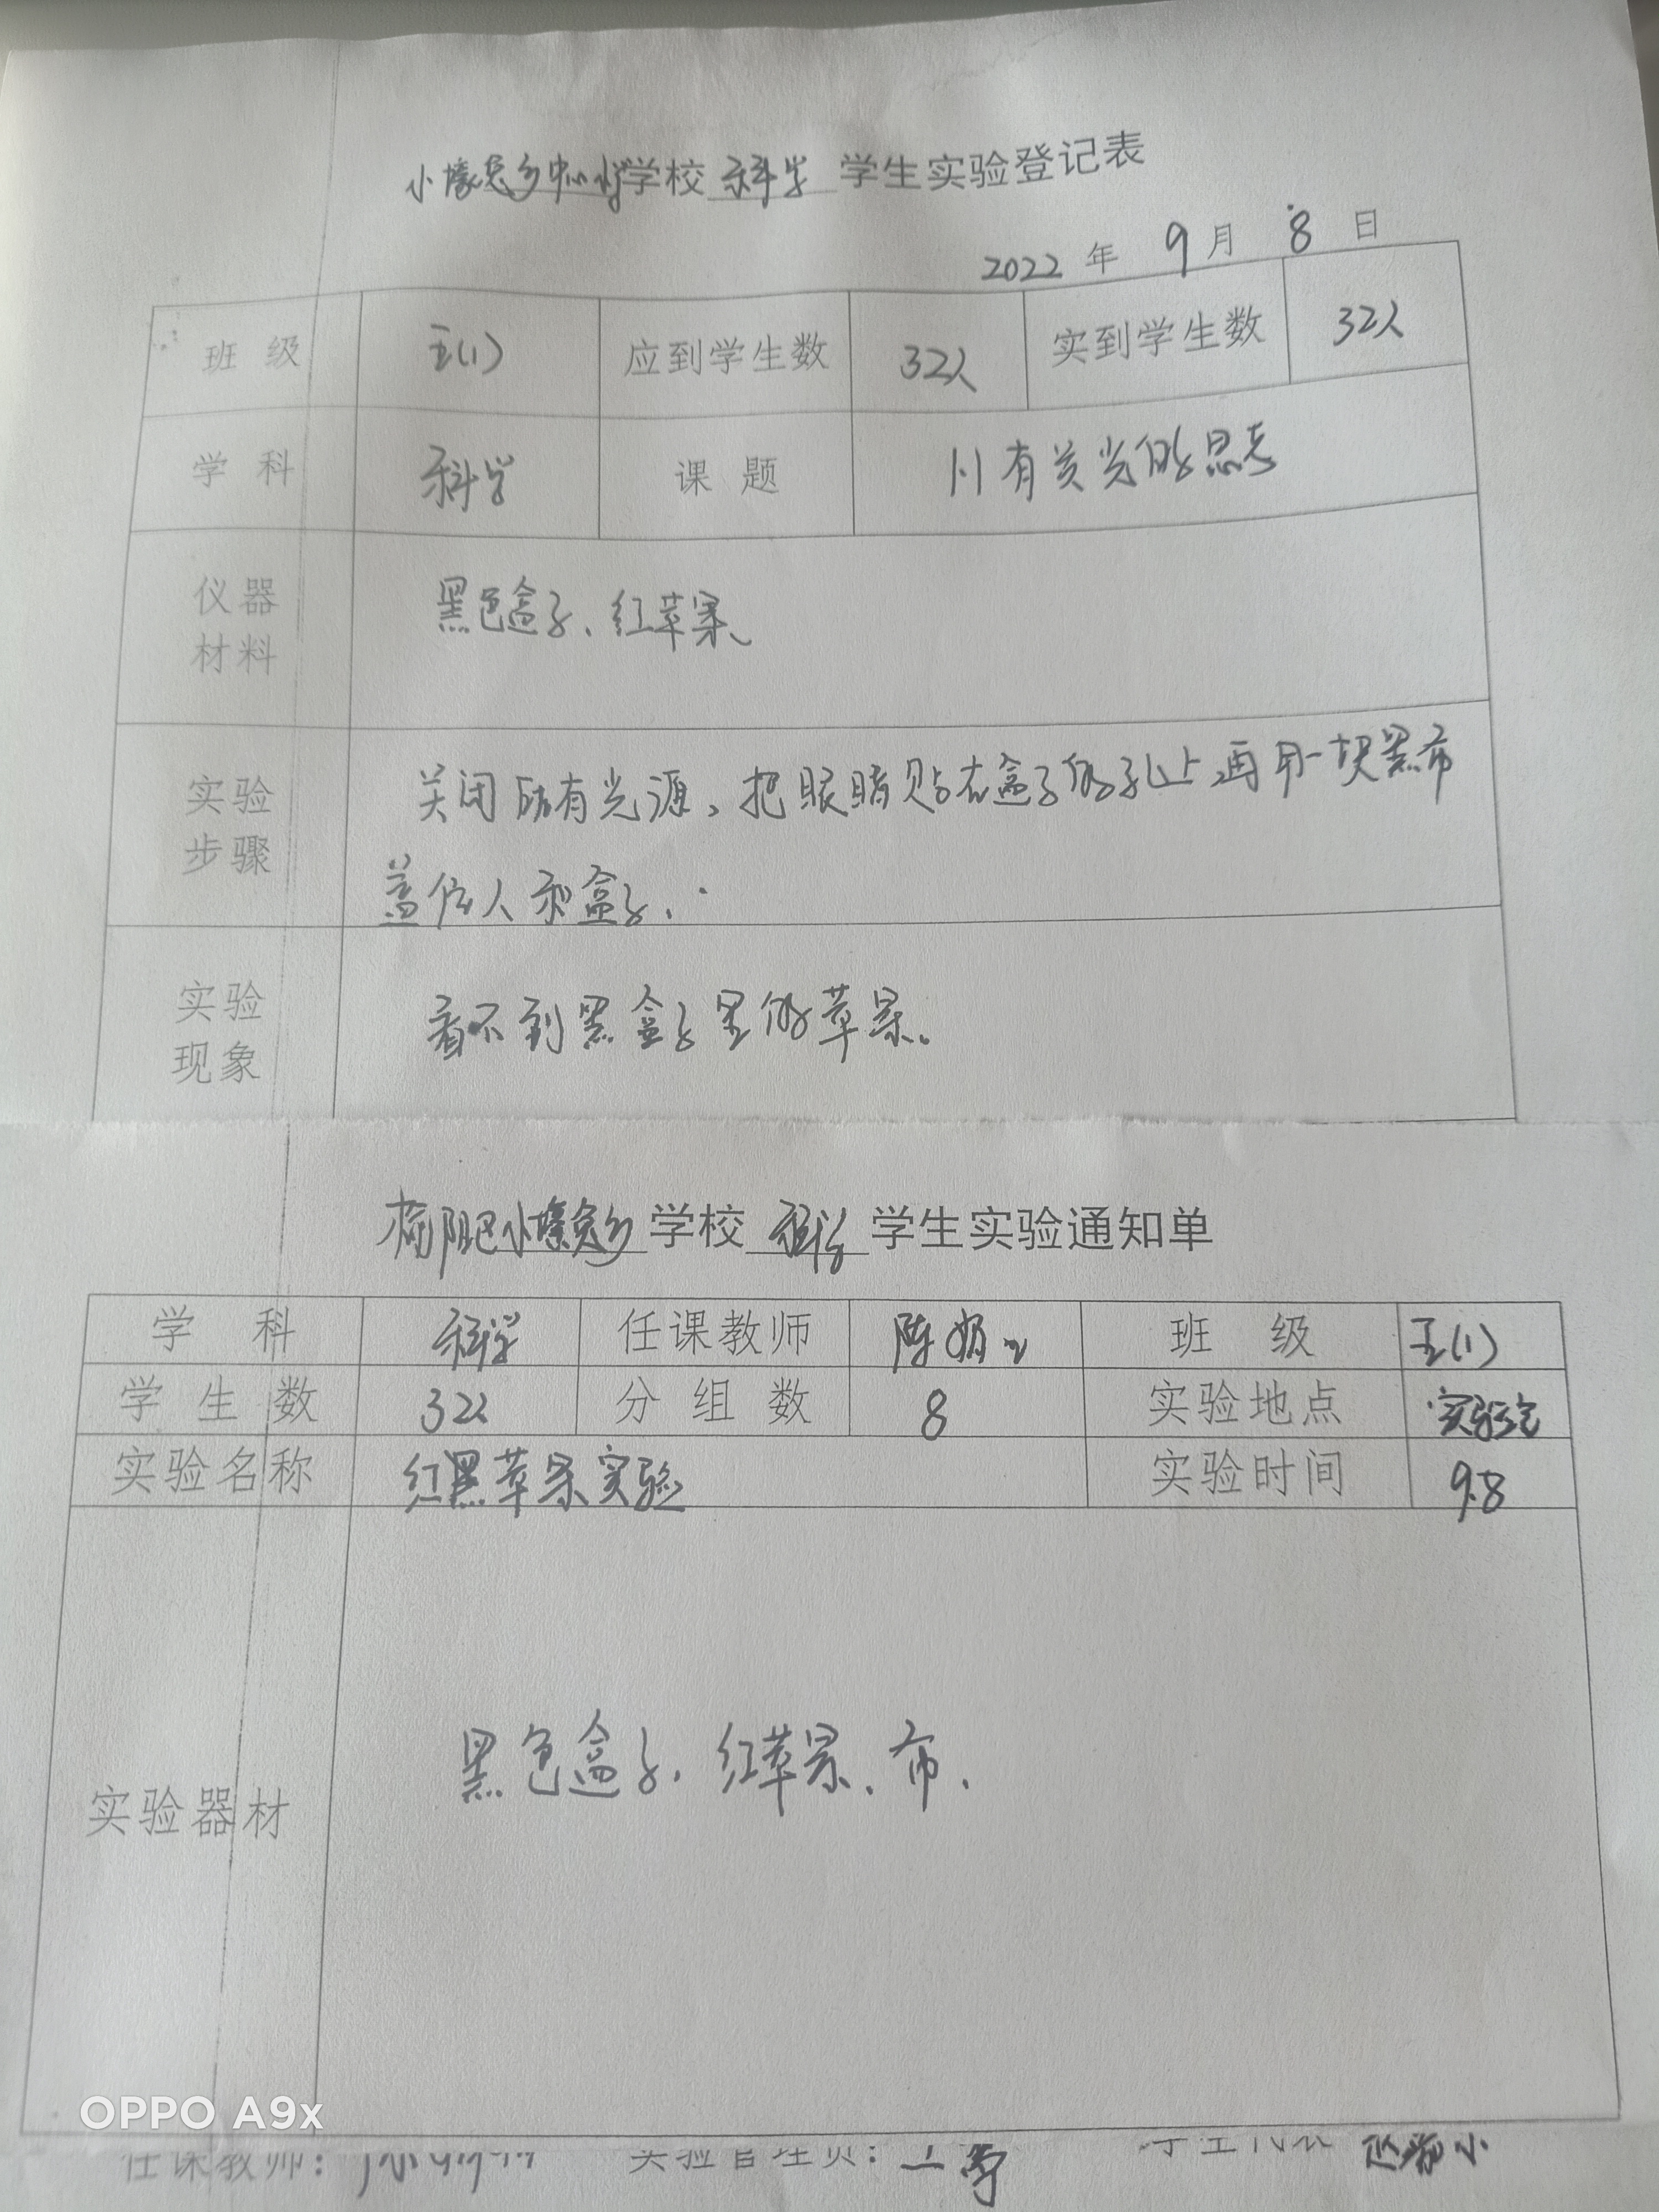 小壕兔乡中心小学学校 科学 学生实验登记表
2022 年 9 月 8 日
班 级 五(1) 应到学生数 32人 实到学生数 32人
学 科 科学 课 题 1.1 有关光的思考
仪器
材料
黑色盒子、红苹果、
实验
步骤
关闭所有光源,把眼睛贴在盒子的孔上,再用一块黑布
盖住人和盒子.
实验
现象
看不到黑盒子里的苹果。
榆阳区小壕兔乡 学校 科学 学生实验通知单
学 科 科学 任课教师 陈 班 级 五(1)
学 生 数 32人 分 组 数 8 实验地点 实验室
实验名称 红黑苹果实验 实验时间 9.8
实验器材
黑色盒子、红苹果、布、
OPPO A9x
任课教师: 实验管理员: 学生代表